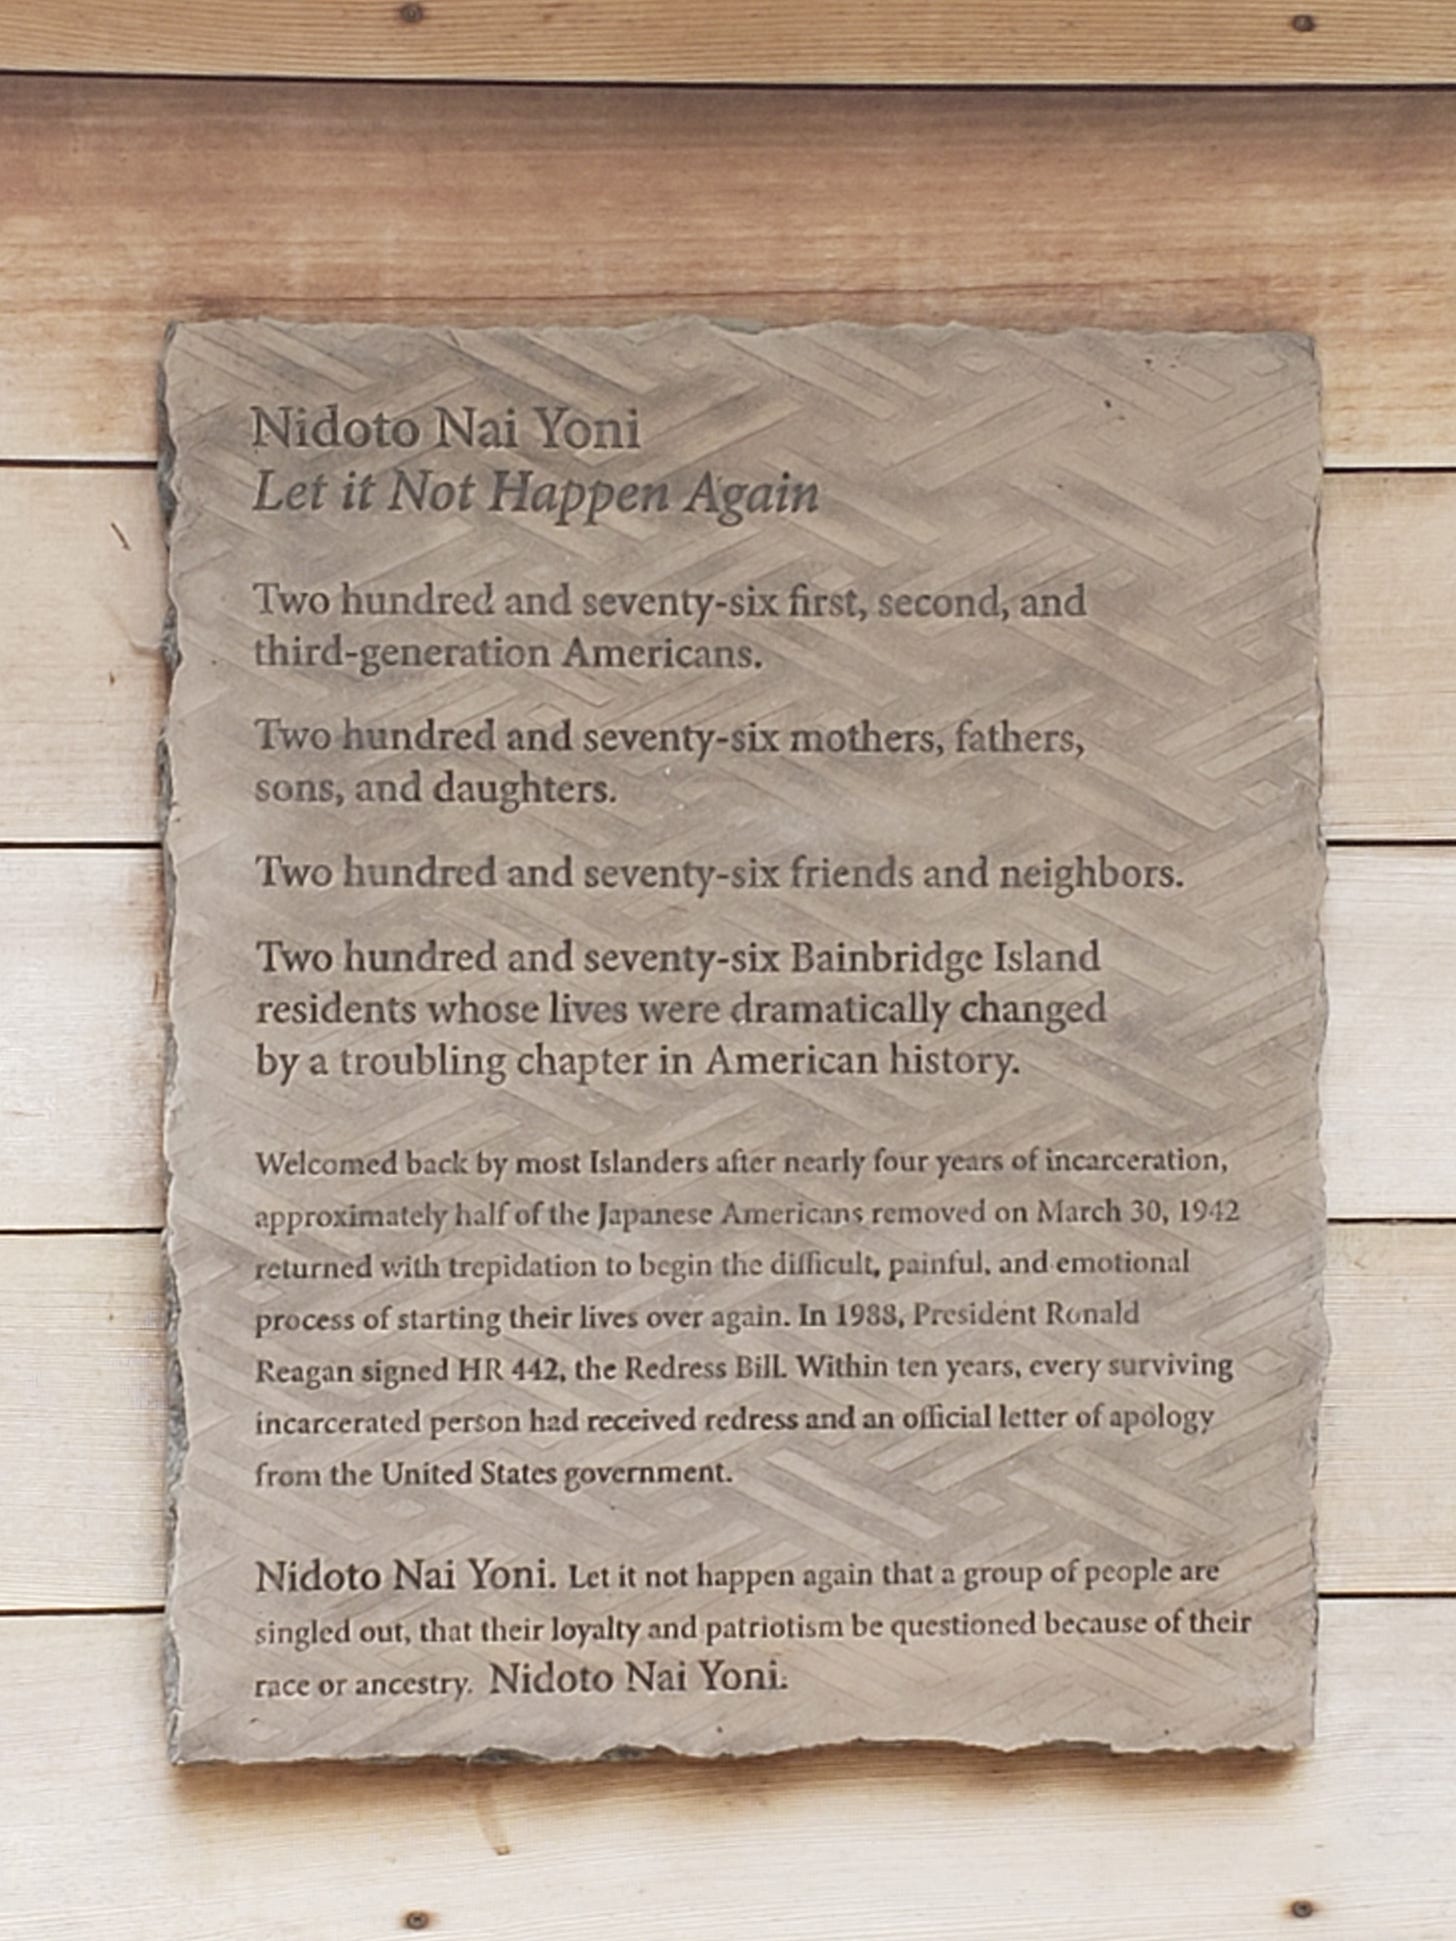 Nidoto Nai Yoni
Let it Not Happen Again
Two hundred and seventy-six first, second, and
third-generation Americans.
Two hundred and seventy-six mothers, fathers,
sons, and daughters.
Two hundred and seventy-six friends and neighbors.
Two hundred and seventy-six Bainbridge Island
residents whose lives were dramatically changed
by a troubling chapter in American history.
Welcomed back by most Islanders after nearly four years of incarceration,
approximately half of the Japanese Americans removed on March 30, 1942
returned with trepidation to begin the difficult, painful, and emotional
process of starting their lives over again. In 1988, President Ronald
Reagan signed HR 442, the Redress Bill. Within ten years, every surviving
incarcerated person had received redress and an official letter of apology
from the United States government.
Nidoto Nai Yoni. Let it not happen again that a group of people are
singled out, that their loyalty and patriotism be questioned because of their
race or ancestry. Nidoto Nai Yoni.